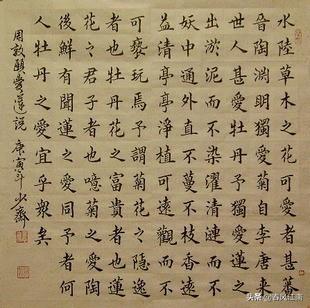 水陸草木之花可愛者甚蕃
晉陶淵明獨愛菊自李唐來
世人甚愛牡丹予獨愛蓮之
出淤泥而不染濯清漣而不
妖中通外直不蔓不枝香遠
益清亭亭淨植可遠觀而不
可褻玩焉予謂菊花之隱逸
者也牡丹花之富貴者也蓮
花之君子者也噫菊之愛陶
後鮮有聞蓮之愛同予者何
人牡丹之愛宜乎衆矣
周敦頤愛蓮說 庚寅年